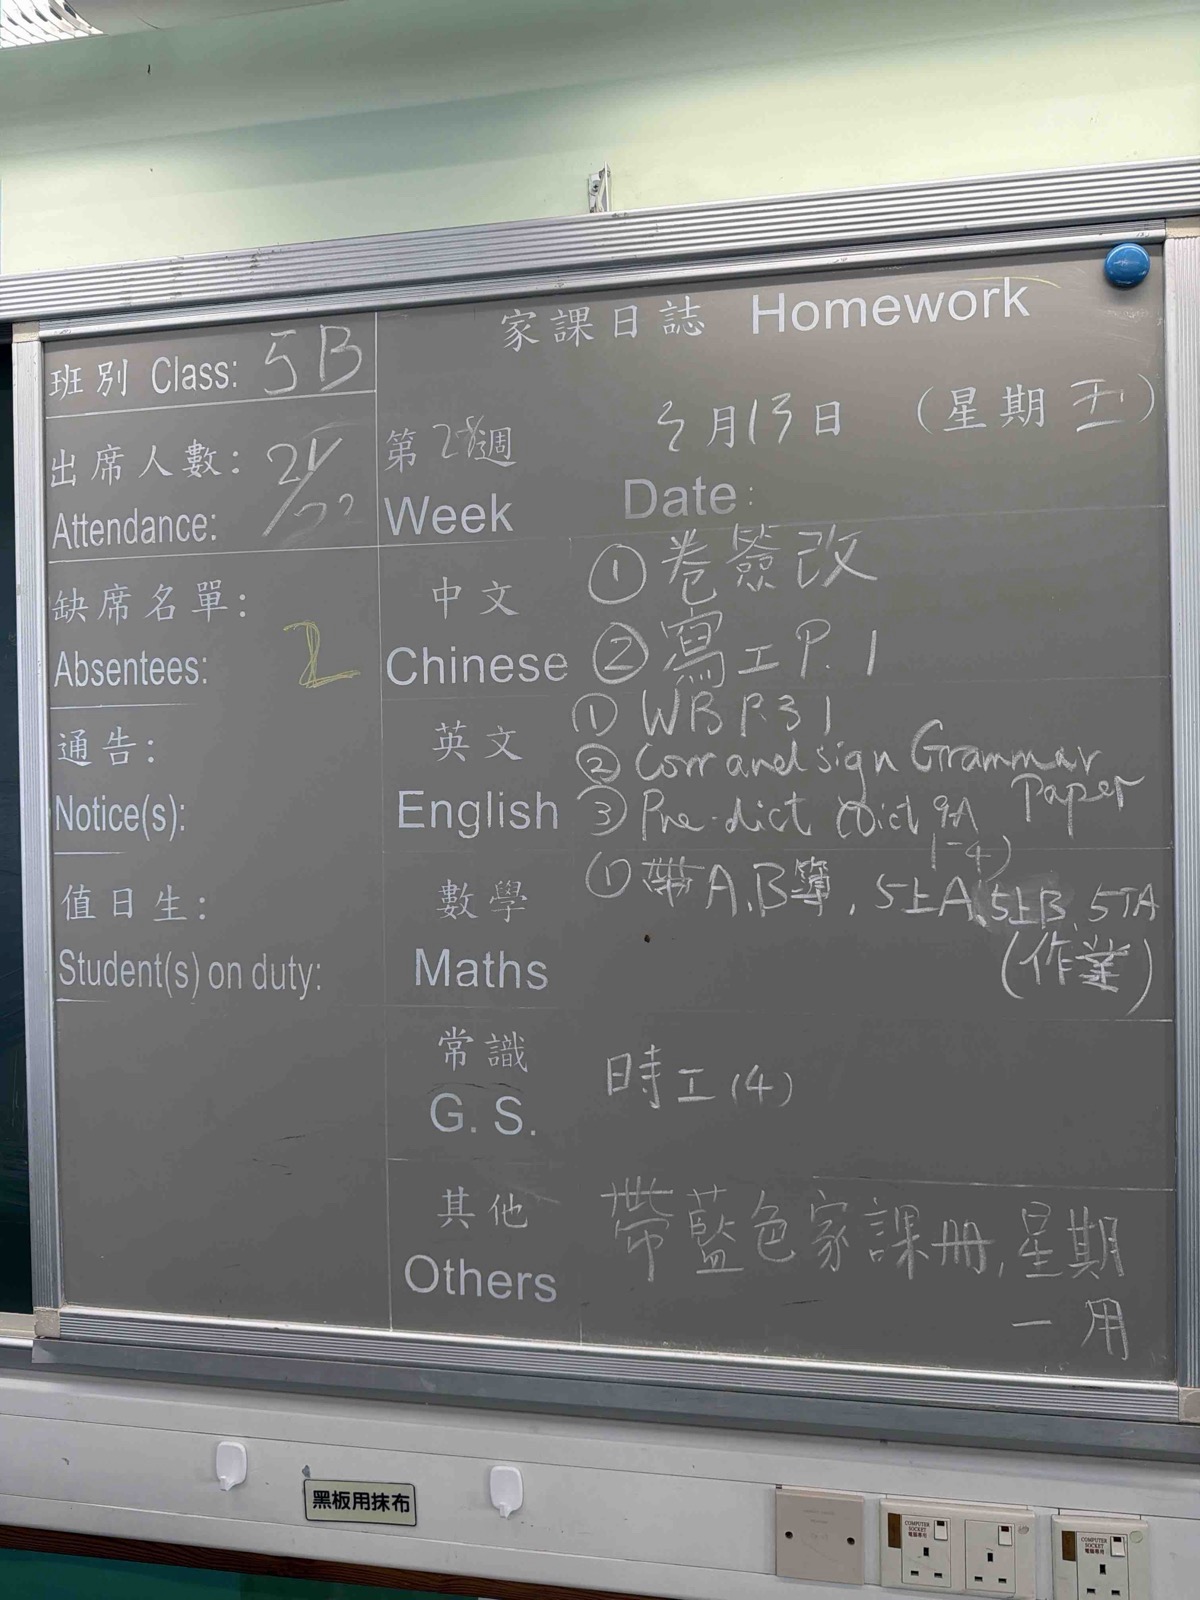 家課日誌 Homework
班別 Class: 5B
出席人數: 21/22
Attendance:
第 週
Week
3月13日 (星期五)
Date:
缺席名單:
Absentees: 2
通告:
Notice(s):
值日生:
Student(s) on duty:
中文
Chinese
① 卷簽改
② 寫工 P. 1
英文
English
① WB P.31
② Corr and sign Grammar Paper
③ Pre-dict (Dict 9A 1-4)
數學
Maths
① 帶A、B簿, 5上A、5上B、5下A
(作業)
常識
G. S.
時工 (4)
其他
Others
帶藍色家課冊, 星期
一用
黑板用抹布
COMPUTER SOCKET
電腦專用
COMPUTER SOCKET
電腦專用